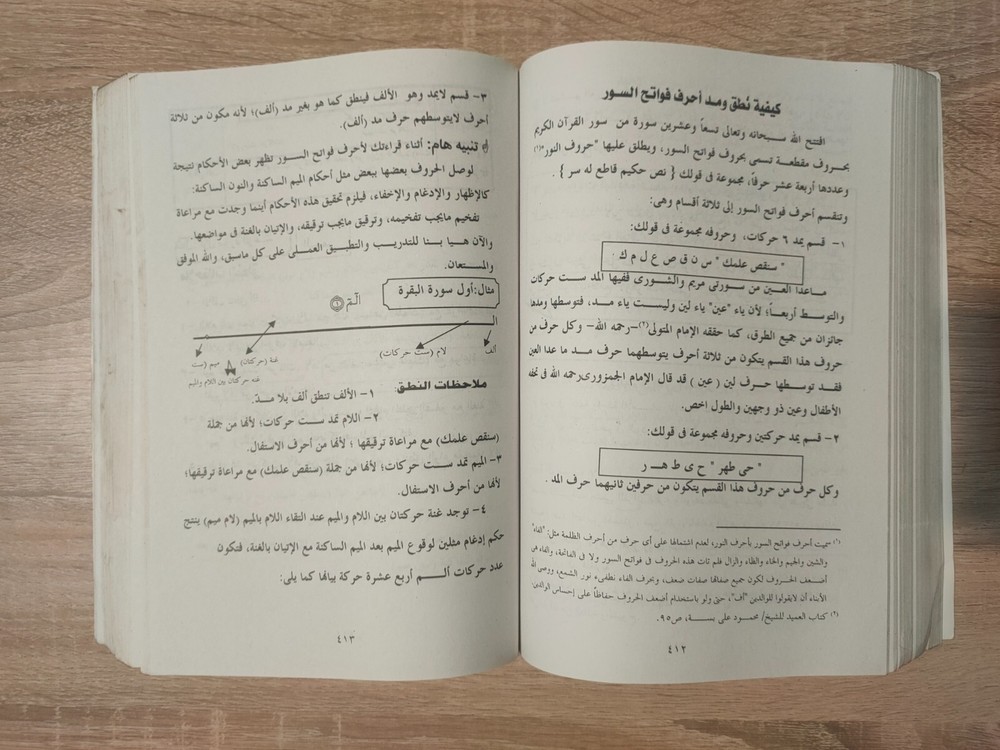 كيفية نُطق ومد أحرف فواتح السور
افتتح الله سبحانه وتعالى تسعاً وعشرين سورة من سور القرآن الكريم
بحروف مقطعة تسمى بحروف فواتح السور، ويطلق عليها "حروف النور"(١)
وعددها أربعة عشر حرفاً، مجموعة فى قولك { نص حكيم قاطع له سر } .
وتنقسم أحرف فواتح السور إلى ثلاثة أقسام وهى:
١- قسم يمد ٦ حركات، وحروفه مجموعة فى قولك:
" سنقص علمك " س ن ق ص ع ل م ك .
ماعدا العين من سورتى مريم والشورى ففيها المد ست حركات
والتوسط أربعاً؛ لأن ياء "عين" ياء لين وليست ياء مد، فتوسطها ومدها
جائزان من جميع الطرق، كما حققه الإمام المتولى(٢)-رحمه الله- وكل حرف من
حروف هذا القسم يتكون من ثلاثة أحرف يتوسطهما حرف مد ما عدا العين
فقد توسطها حرف لين ( عين ) قد قال الإمام الجمزورى رحمه الله فى تحفة
الأطفال وعين ذو وجهين والطول اخص.
٢- قسم يمد حركتين وحروفه مجموعة فى قولك:
" حى طهر " ح ى ط هـ ر
وكل حرف من حروف هذا القسم يتكون من حرفين ثانيهما حرف المد .
(١) سميت أحرف فواتح السور بأحرف النور، لعدم اشتمالها على أى حرف من أحرف الظلمة مثل: "الفاء"
والشين والجيم والخاء والظاء والزال فلم تأت هذه الحروف فى فواتح السور ولا فى الفاتحة، والفاء هى
أضعف الحروف لكون جميع صفاتها صفات ضعف، وبحرف الفاء نطفىء نور الشمع، ووصى الله
الأبناء أن لايقولوا للوالدين "أف"، حتى ولو باستخدام أضعف الحروف حفاظاً على إحساس الوالدين.
(٢) كتاب العميد للشيخ/ محمود على بسة، ص٩٥.
٤١٢
٣- قسم لايمد وهو الألف فينطق كما هو بغير مد (ألف)؛ لأنه مكون من ثلاثة
أحرف لايتوسطهم حرف مد (ألف).
تنبيه هام: أثناء قراءتك لأحرف فواتح السور تظهر بعض الأحكام نتيجة
لوصل الحروف بعضها ببعض مثل أحكام الميم الساكنة والنون الساكنة:
كالإظهار والإدغام والإخفاء، فيلزم تحقيق هذه الأحكام أينما وجدت مع مراعاة
تفخيم مايجب تفخيمه، وترقيق مايجب ترقيقه، والإتيان بالغنة فى مواضعها.
والآن هيا بنا للتدريب والتطبيق العملى على كل ماسبق، والله الموفق
والمستعان.
مثال: أول سورة البقرة
الٓمٓ ١
ال
ألف
لام (ست حركات)
غنة (حركتان)
ميم (ست
غنه حركتان بين اللام والميم
ملاحظات النطق
١- الألف تنطق ألف بلا مدّ.
٢- اللام تمد ست حركات؛ لأنها من جملة
(سنقص علمك) مع مراعاة ترقيقها ؛ لأنها من أحرف الاستفال.
٣- الميم تمد ست حركات؛ لأنها من جملة (سنقص علمك) مع مراعاة ترقيقها؛
لأنها من أحرف الاستفال.
٤- توجد غنة حركتان بين اللام والميم عند التقاء اللام بالميم (لام ميم) ينتج
حكم إدغام مثلين لوقوع الميم بعد الميم الساكنة مع الإتيان بالغنة، فتكون
عدد حركات ألـــم أربع عشرة حركة بيانها كما يلى:
٤١٣